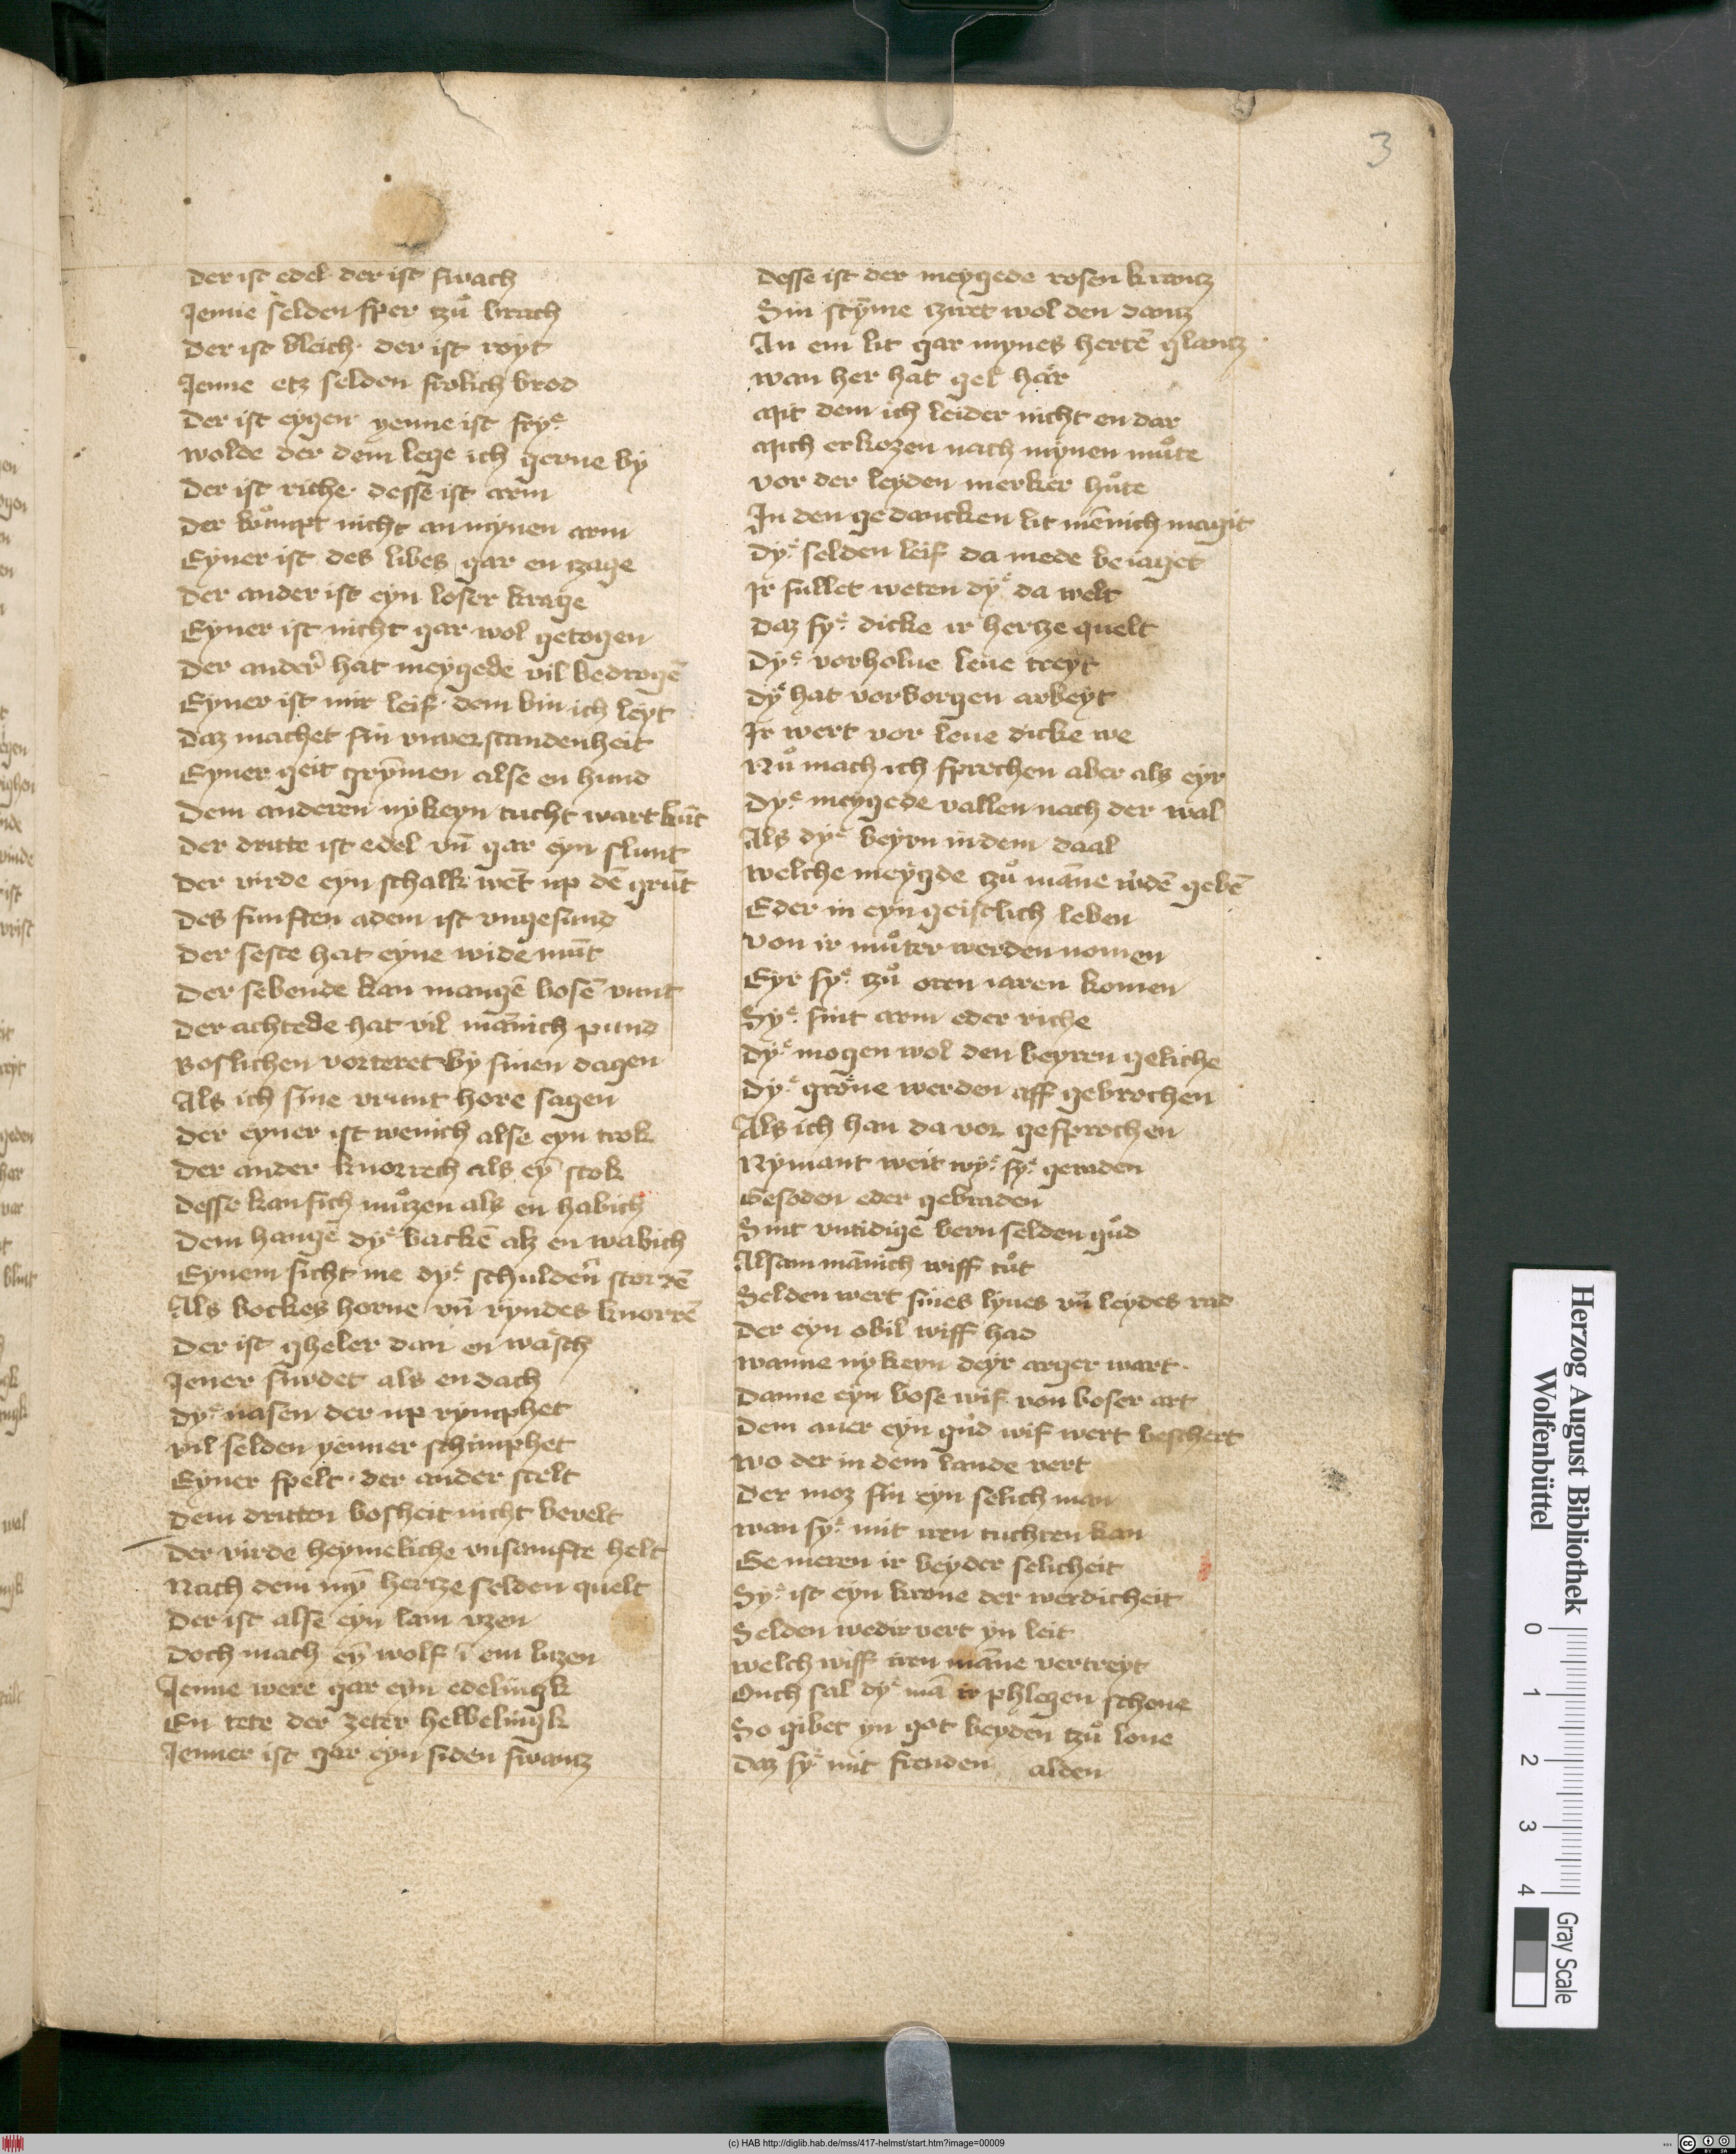 3
Der ist edel der ist swach
Jenne selden sper tzuͦ brach
Der ist bleich · der ist royt
Jenne etz selden frolich brod
Der ist eygen yenne ist fryͤ
Wolde der dem lege ich gerne by
Der ist riche · desse ist arm
Der kuͦmpt nicht an mynen arm
Eyner ist des libes gar en tzage
Der ander ist eyn loser krage
Eyner ist nicht gar wol getogen
Der ander hat meygede vil bedrogē
Eyner ist mir leif · dem bin ich leyt
Daz machet sin vnverstandenheit
Eyner geit grȳmen alse en hund
Dem anderen nykeyn tucht wart kūt
Der dritte ist edel vn̄ gar eyn slunt
Der virde eyn schalk wēt up dē grūt
Des funften adem ist vngesund
Der seste hat eyne wide mūt
Der sebende kan mangē bosē vunt
Der achtede hat vil mānich pund
Boslichen vorteret by sinen dagen
Als ich sine vrunt hore sagen
Der eyner ist wenich alse eyn trok
Der ander knorrech als eȳ stok
Desse kan sich muͦtzen als en habich
Dem hangē dyͤ backē alz en wabich
Eynem sicht me dyͤ schuldern storrē
Als bockes horne vn̄ ryndes knorrē
Der ist gheler dan en wasch
Jener surdet als en dach
Dyͤ nasen der up rymphet
Vil selden yenner schimphet
Eyner spelt · der ander stelt
Dem dritten bosheit nicht bevelt
Der virde heymeliche vnsamfte helt
Nach dem mȳ hertze selden quelt
Der ist alse eyn lam vzen
Doch mach eȳ wolf ī em luzen
Jenne were gar eyn edelingk
En tete der zeter helbelingk
Jenner ist gar eyn siden swantz
Desse ist der meygede rosen krantz
Sin stȳme tziret wol den dantz
An em lit gar mynes hertē glantz
Wan her hat gel har
Mit dem ich leider nicht en dar
Mich erkozen nach mynen muͦte
Vor der leyden merker huͦte
In den gedancken lit mēnich magit
Dyͤ selden leif da mede beiaget
Ir sullet weten dyͤ da welt
Daz syͤ dicke ir hertze quelt
Dyͤ vorholne leue treyt
Dyͤ hat vorborgen arbeyt
Ir wert vor leue dicke we
Nuͦ mach ich sprechen aber als eyr
Dyͤ meygede vallen nach der wal
Als dyͤ beyrn in dem daal
Welche meygde tzuͦ māne w'dē gebē
Eder in eyn geistlich leben
Von ir muͦter werden nomen
Eyr syͤ tzuͦ oren iaren komen
Syͤ sint arm eder riche
Dyͤ mogen wol den beyren geliche
Dyͤ groͤne werden aff gebrochen
Als ich han da vor gesprochen
Nymant weit wyͤ syͤ geraden
Gesoden eder gebraden
Sint vntidige bern selden guͦd
Alsam mānich wiff tuͦt
Selden wert sines lyues vn̄ leydes rad
Der eyn obil wiff had
Wanne nykeyn deyr arger wart
Danne eyn bose wif von boser art
Dem auer eyn guͦd wif wert beschert
Wo der in dem lande vert
Der moz sin eyn selich man
Wan syͤ mit iren tuchten kan
Ge meren ir beyder selicheit
Syͤ ist eyn krone der werdicheit
Selden wedir vert yn leit
Welch wiff iren māne vertreyt
Ouch sal dyͤ mā ir phlegen schone
So gibet yn got beyden tzuͦ lone
Daz syͤ mit freuden alden
Herzog August Bibliothek
Wolfenbüttel
0 1 2 3 4
Gray Scale
(c) HAB http://diglib.hab.de/mss/417-helmst/start.htm?image=00009